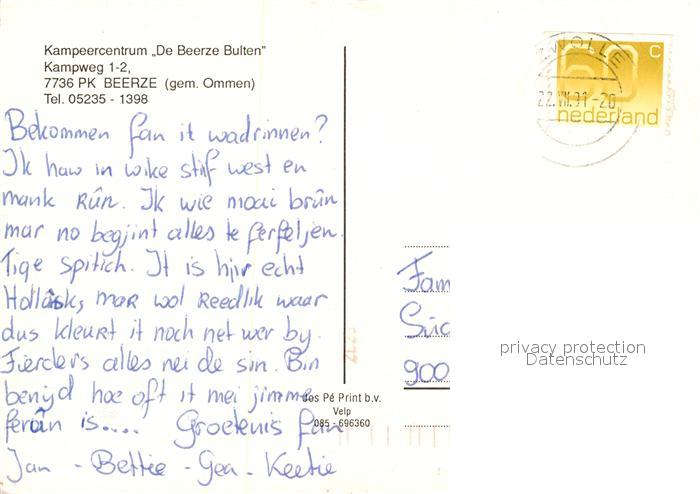 Kampeercentrum „De Beerze Bulten"
Kampweg 1-2,
7736 PK BEERZE (gem. Ommen)
Tel. 05235 - 1398
Bekommen fan it wadrinnen?
Ik haw in wike stiif west en
mank RÛN. Ik wie moai brûn
mar no begjint alles te ferfeljen.
Tige spitich. It is hjir echt
Hollânsk, mar wol Reedlik waar
dus kleurt it noch net wer by.
Fierders alles nei de sin. Bin
benijd hoe oft it mei jimme
ferûn is.... Groetenis fan
Jan - Bettie - Gea - Keetie
ZWOLLE
22.VII.91-20
60 C
nederland
Fam
900
Jos Pé Print b.v.
Velp
085 - 696360
privacy protection
Datenschutz